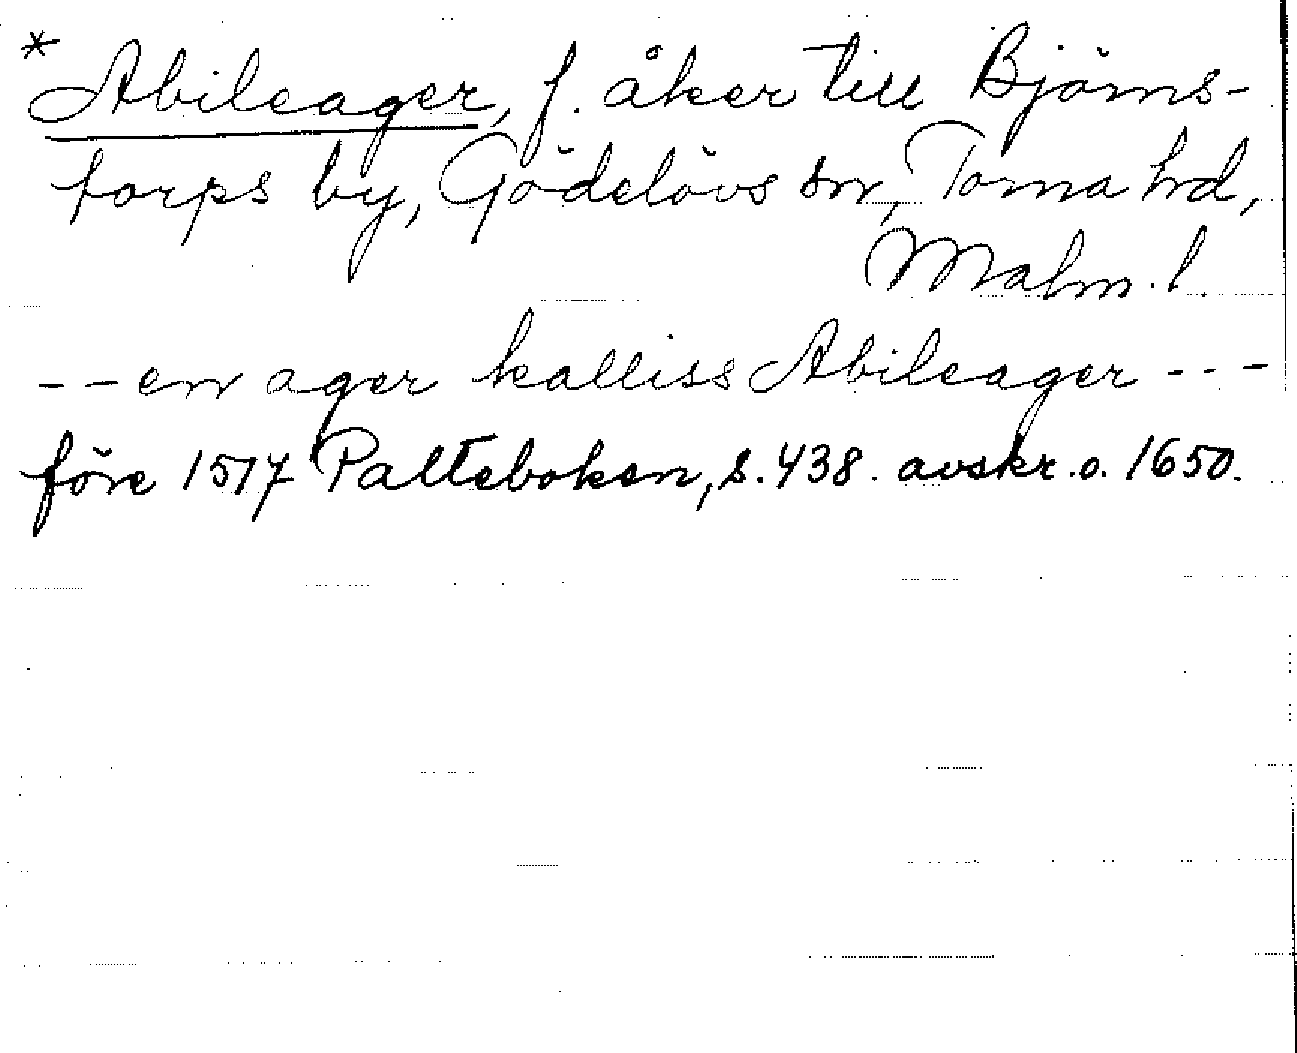 *Abileager, f. åker till Björns-
torps by, Gödelövs sn, Torna hd,
Malm. l.
-- en ager kalliss Abileager ---
före 1517 Palteboken, s. 438. avskr. o. 1650.